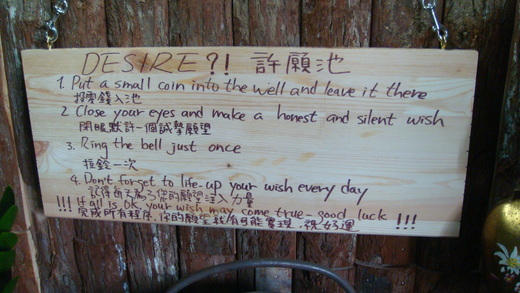 DESIRE?! 許願池
1. Put a small coin into the well and leave it there
投零錢入池
2. Close your eyes and make a honest and silent wish
閉眼默許一個誠摯願望
3. Ring the bell just once
拉鈴一次
4. Don't forget to life-up your wish every day
記得每天為你的願望注入力量
!!! If all is OK, your wish may come true - good luck !!!
完成所有程序，你的願望就有可能實現，祝好運